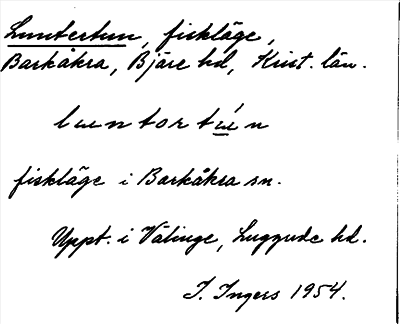 Luntertun, fiskläge,
Barkåkra, Bjäre hd, Krist. län.
fiskläge i Barkåkra sn.
Uppt. i Välinge, Luggude hd.
I. Ingers 1954.